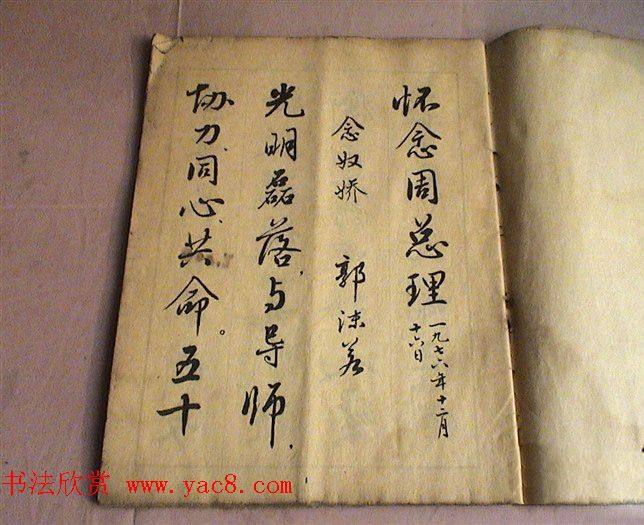 怀念周总理
一九七六年十二月
十六日
念奴娇 郭沫若
光明磊落,与导师,
协力、同心、共命。五十
书法欣赏 www.yac8.com